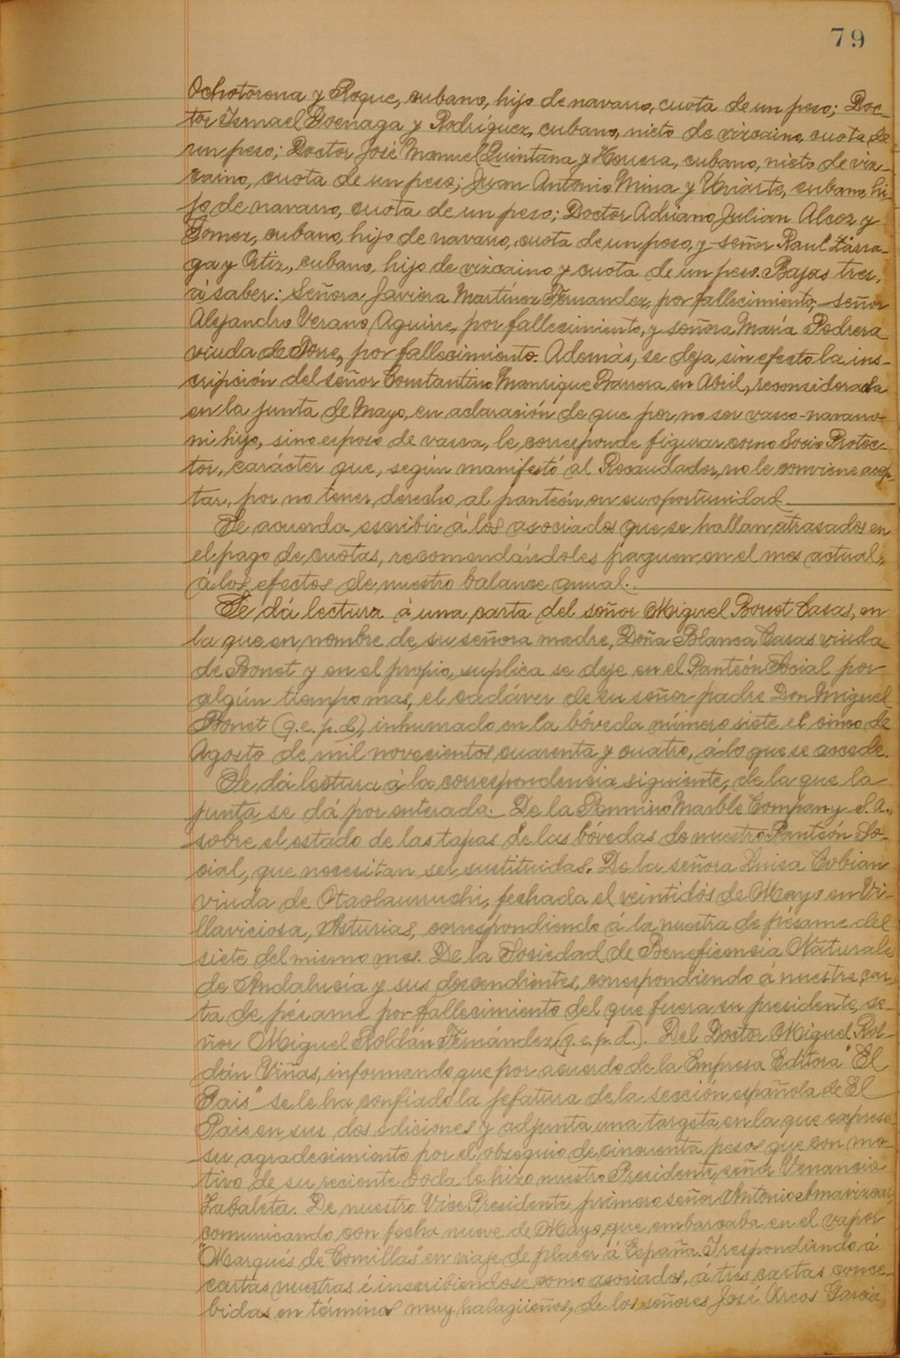 79
Ochotorena y Roque, cubano, hijo de navarro, cuota de un peso; Doc-
tor Ismael Goenaga y Rodríguez, cubano, nieto de vizcaino, cuota de
un peso; Doctor José Manuel Quintana y Herrera, cubano, nieto de viz-
caino, cuota de un peso; Juan Antonio Mina y Uriarte, cubano, hi-
jo de navarro, cuota de un peso; Doctor Adriano Julian Alcoz y
Gomez, cubano, hijo de navarro, cuota de un peso, y señor Raul Lárra-
ga y Ortiz, cubano, hijo de vizcaino y cuota de un peso. Bajas tres,
á saber: Señora Javiera Martínez Fernandez, por fallecimiento; señor
Alejandro Verano Aguirre, por fallecimiento, y señora María Pedrera
viuda de Pons, por fallecimiento. Además, se deja sin efecto la ins-
cripción del señor Constantino Manrique Pravera en Abril, reconsiderada
en la junta de Mayo, en aclaración de que por no ser vasco-navarro
ni hijo, sino esposo de vasca, le corresponde figurar como Socio Protec-
tor, carácter que, según manifestó al Recaudador, no le conviene acep-
tar, por no tener derecho al panteón en su oportunidad.
Se acuerda escribir á los asociados que se hallan atrasados en
el pago de cuotas, recomendándoles paguen en el mes actual,
á los efectos de nuestro balance anual.
Se dá lectura á una carta del señor Miguel Bonet Casas, en
la que en nombre de su señora madre, Doña Blanca Casas viuda
de Bonet y en el propio, suplica se deje en el Panteón Social por
algún tiempo mas, el cadáver de su señor padre Don Miguel
Bonet (q.e.p.d), inhumado en la bóveda número siete el cinco de
Agosto de mil novecientos cuarenta y cuatro, á lo que se accede.
Se dá lectura á la correspondencia siguiente, de la que la
junta se dá por enterada: De la Pennino Marble Company S.A.,
sobre el estado de las tapas de las bóvedas de nuestro Panteón So-
cial, que necesitan ser sustituidas. De la señora Luisa Cobian
viuda de Otaolaurruchi, fechada el veintidós de Mayo en Vi-
llaviciosa, Asturias, correspondiendo á la nuestra de pésame del
siete del mismo mes. De la Sociedad de Beneficencia Naturales
de Andalucía y sus descendientes, correspondiendo á nuestra car-
ta de pésame por fallecimiento del que fuera su presidente, se-
ñor Miguel Roldán Fernández (q.e.p.d.). Del Doctor Miguel Rol-
dán Viñas, informando que por acuerdo de la Empresa Editora "El
Pais" se le ha confiado la jefatura de la sección española de El
Pais en sus dos ediciones y adjunta una targeta en la que expresa
su agradecimiento por el obsequio de cincuenta pesos que con mo-
tivo de su reciente boda le hizo nuestro Presidente, señor Venancio
Zabaleta. De nuestro Vice Presidente primero señor Antonio
comunicando con fecha nueve de Mayo, que embarcaba en el vapor
"Marqués de Comillas" en viaje de placer á España. Irespondiendo á
cartas nuestras é inscribiendose como asociados, á tres cartas conce-
bidas en términos muy halagüeños, de los señores José Arcos García,